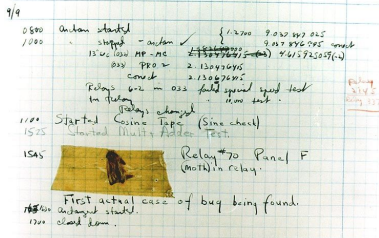 9/9
0800 antan started
1000 " stopped - antan ✓ { 1.2700 9.037 847 025
9.037 846 995 conect
13" uc (032) MP-MC 2.130476415 (-3) 4.615925059(-2)
(033) PRO 2 2.130476415
conect 2.130676415
Relays 6-2 in 033 failed special speed test
in relay " 10,000 test.
Relays changed
1100 Started Cosine Tape (Sine check)
1525 Started Mult + Adder Test.
1545 Relay #70 Panel F
(moth) in relay.
First actual case of bug being found.
1630 antangent started.
1700 closed down.